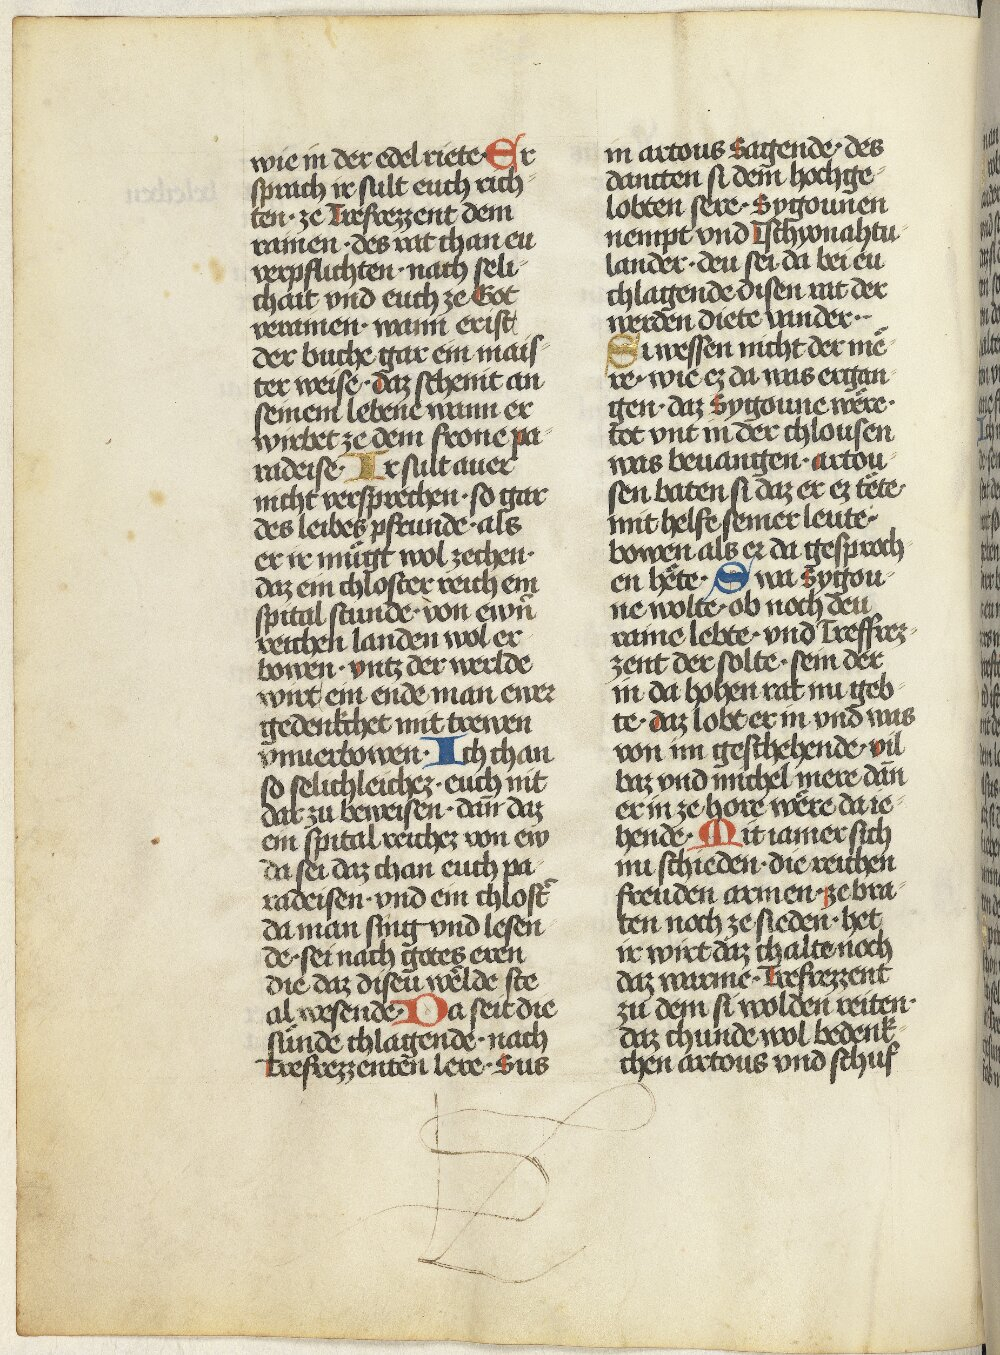 wie in der edel riete · Er
sprach ir sult euch rich-
ten · ze Trefrezzent dem
rainen · des rat chan eu
verpflichten · nach seli-
chait vnd euch ze Got
veramen · wann er ist
der buche gar ein mais-
ter weise · daz scheinit an
seinem lebene wann er
wirbet ze dem frone pa-
radeise · Ir sult auer
nicht versprechen · so gar
des leibes pfrunde · als
er ir mügt wol zechen ·
daz ein chloster reich ein
spital stunde · von ewrn̄
reichen landen wol er-
bowen · vntz der werlde
wirt ein ende man ewer
gedenkchet mit trewen
vnuerbowen · Ich chan
so selichleichez · euch nit
dar zu beweisen · dan̄ daz
ein spital reichez von ew
da sei daz chan euch pa-
radeisen · vnd ein chlost̄
da man sing vnd lesen-
de · sei nach gotes eren
die daz diseu wĕlde ste
al wesende · Da seit die
sünde chlagende · nach
Trefrezzenten̄ lere · Sus
in artous sagende · des
dancten si dem̄ hochge-
lobten sere · Sygounen
nempt vnd Tschyonahtu-
lander · deu sei da bei eu
chlagende disen rat der
werden diete vander ··
Si wessen nicht der mĕ-
re · wie ez da was ergan-
gen · daz Sygoune wĕre ·
tot vnt in der chlousen
was beuangen · artou-
sen baten si daz er ez tĕte ·
mit helfe seiner leute ·
bowen als er da gesproch-
en hĕte · Swa Sygou-
ne wolte · ob noch deu
raine lebte · vnd Treffrez-
zent der solte · sein der
in da hohen rat nu geb-
te · daz lobt er in vnd was
von im geschehende · vil
baz vnd michel mere dān
er in ze hore wĕre da ie-
hende · Mit iamer sich
nu schieden · die reichen
freuden armen · ze bra-
ten noch ze sieden · het
ir wirt daz chalte noch
daz warme · Trefrezzent
zu dem si wolden reiten ·
daz chunde wol bedenk-
chen artous vnd schuf